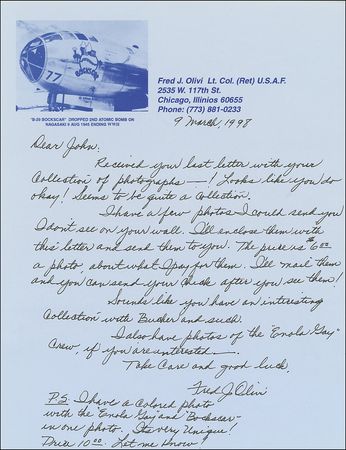 77
BOCKSCAR
"B-29 BOCKSCAR" DROPPED 2ND ATOMIC BOMB ON
NAGASAKI 9 AUG 1945 ENDING WWII
Fred J. Olivi Lt. Col. (Ret) U.S.A.F.
2535 W. 117th St.
Chicago, Illinios 60655
Phone: (773) 881-0233
9 March, 1998
Dear John:
Received your last letter with your
Collection of photographs —! Looks like you do
okay! Seems to be quite a collection.
I have a few photos I could send you
I don't see on your wall. I'll enclose them with
this letter and send them to you. The price is $6.00
a photo, about what I pay for them. I'll mail them
and you can send your check after you see them!
Sounds like you have an interesting
Collection with Bucher and such.
I also have photos of the "Enola Gay"
Crew, if you are interested —
Take Care and good luck,
Fred J Olivi
P.S. I have a Colored photo
with the "Enola Gay" and "Bockscar" -
in one photo. Its very Unique!
Price 10.00. Let me know